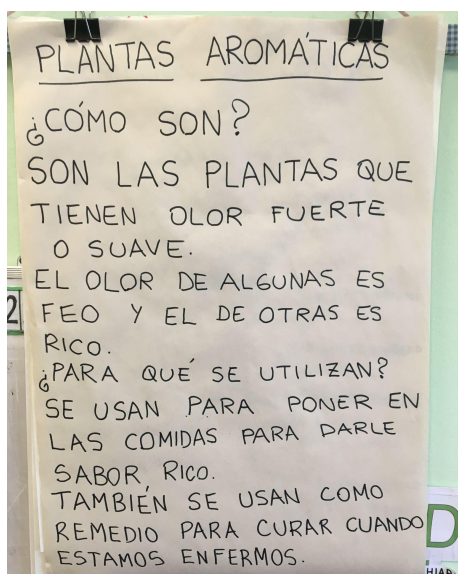 PLANTAS AROMÁTICAS
¿CÓMO SON?
SON LAS PLANTAS QUE
TIENEN OLOR FUERTE
O SUAVE.
EL OLOR DE ALGUNAS ES
FEO Y EL DE OTRAS ES
RICO.
¿PARA QUÉ SE UTILIZAN?
SE USAN PARA PONER EN
LAS COMIDAS PARA DARLE
SABOR RICO.
TAMBIÉN SE USAN COMO
REMEDIO PARA CURAR CUANDO
ESTAMOS ENFERMOS.
2
D